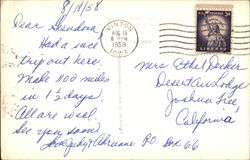 8/18/58
Dear Grandma,
Had a nice
trip out here.
Made 1102 miles
in 1 1/2 days.
All are well.
See you soon!
Love Judy & Adrienne
VINTON
AUG 18
6 PM
1958
IOWA
LIBERTY
3¢
Mrs Ethel Decker
Desert Aire Lodge
Joshua Tree,
California
P.O. Box 66